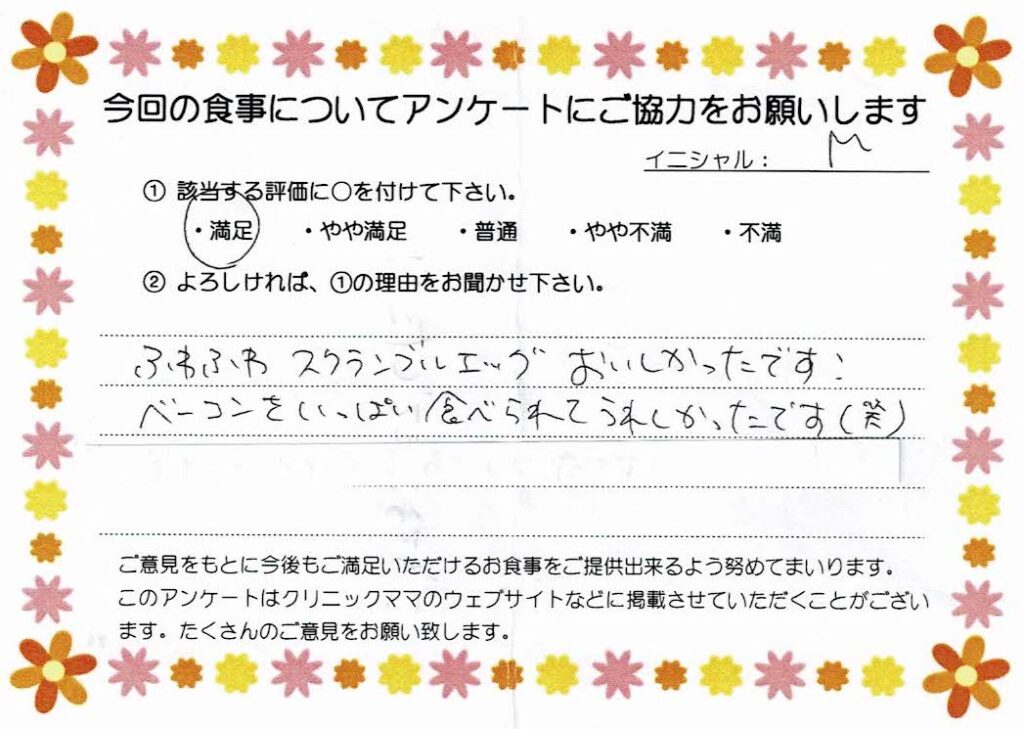 今回の食事についてアンケートにご協力をお願いします
イニシャル： M
① 該当する評価に○を付けて下さい。
・満足 ・やや満足 ・普通 ・やや不満 ・不満
② よろしければ、①の理由をお聞かせ下さい。
ふわふわ スクランブルエッグ おいしかったです！
ベーコンをいっぱい食べられてうれしかったです（笑）
ご意見をもとに今後もご満足いただけるお食事をご提供出来るよう努めてまいります。
このアンケートはクリニックママのウェブサイトなどに掲載させていただくことがござい
ます。たくさんのご意見をお願い致します。